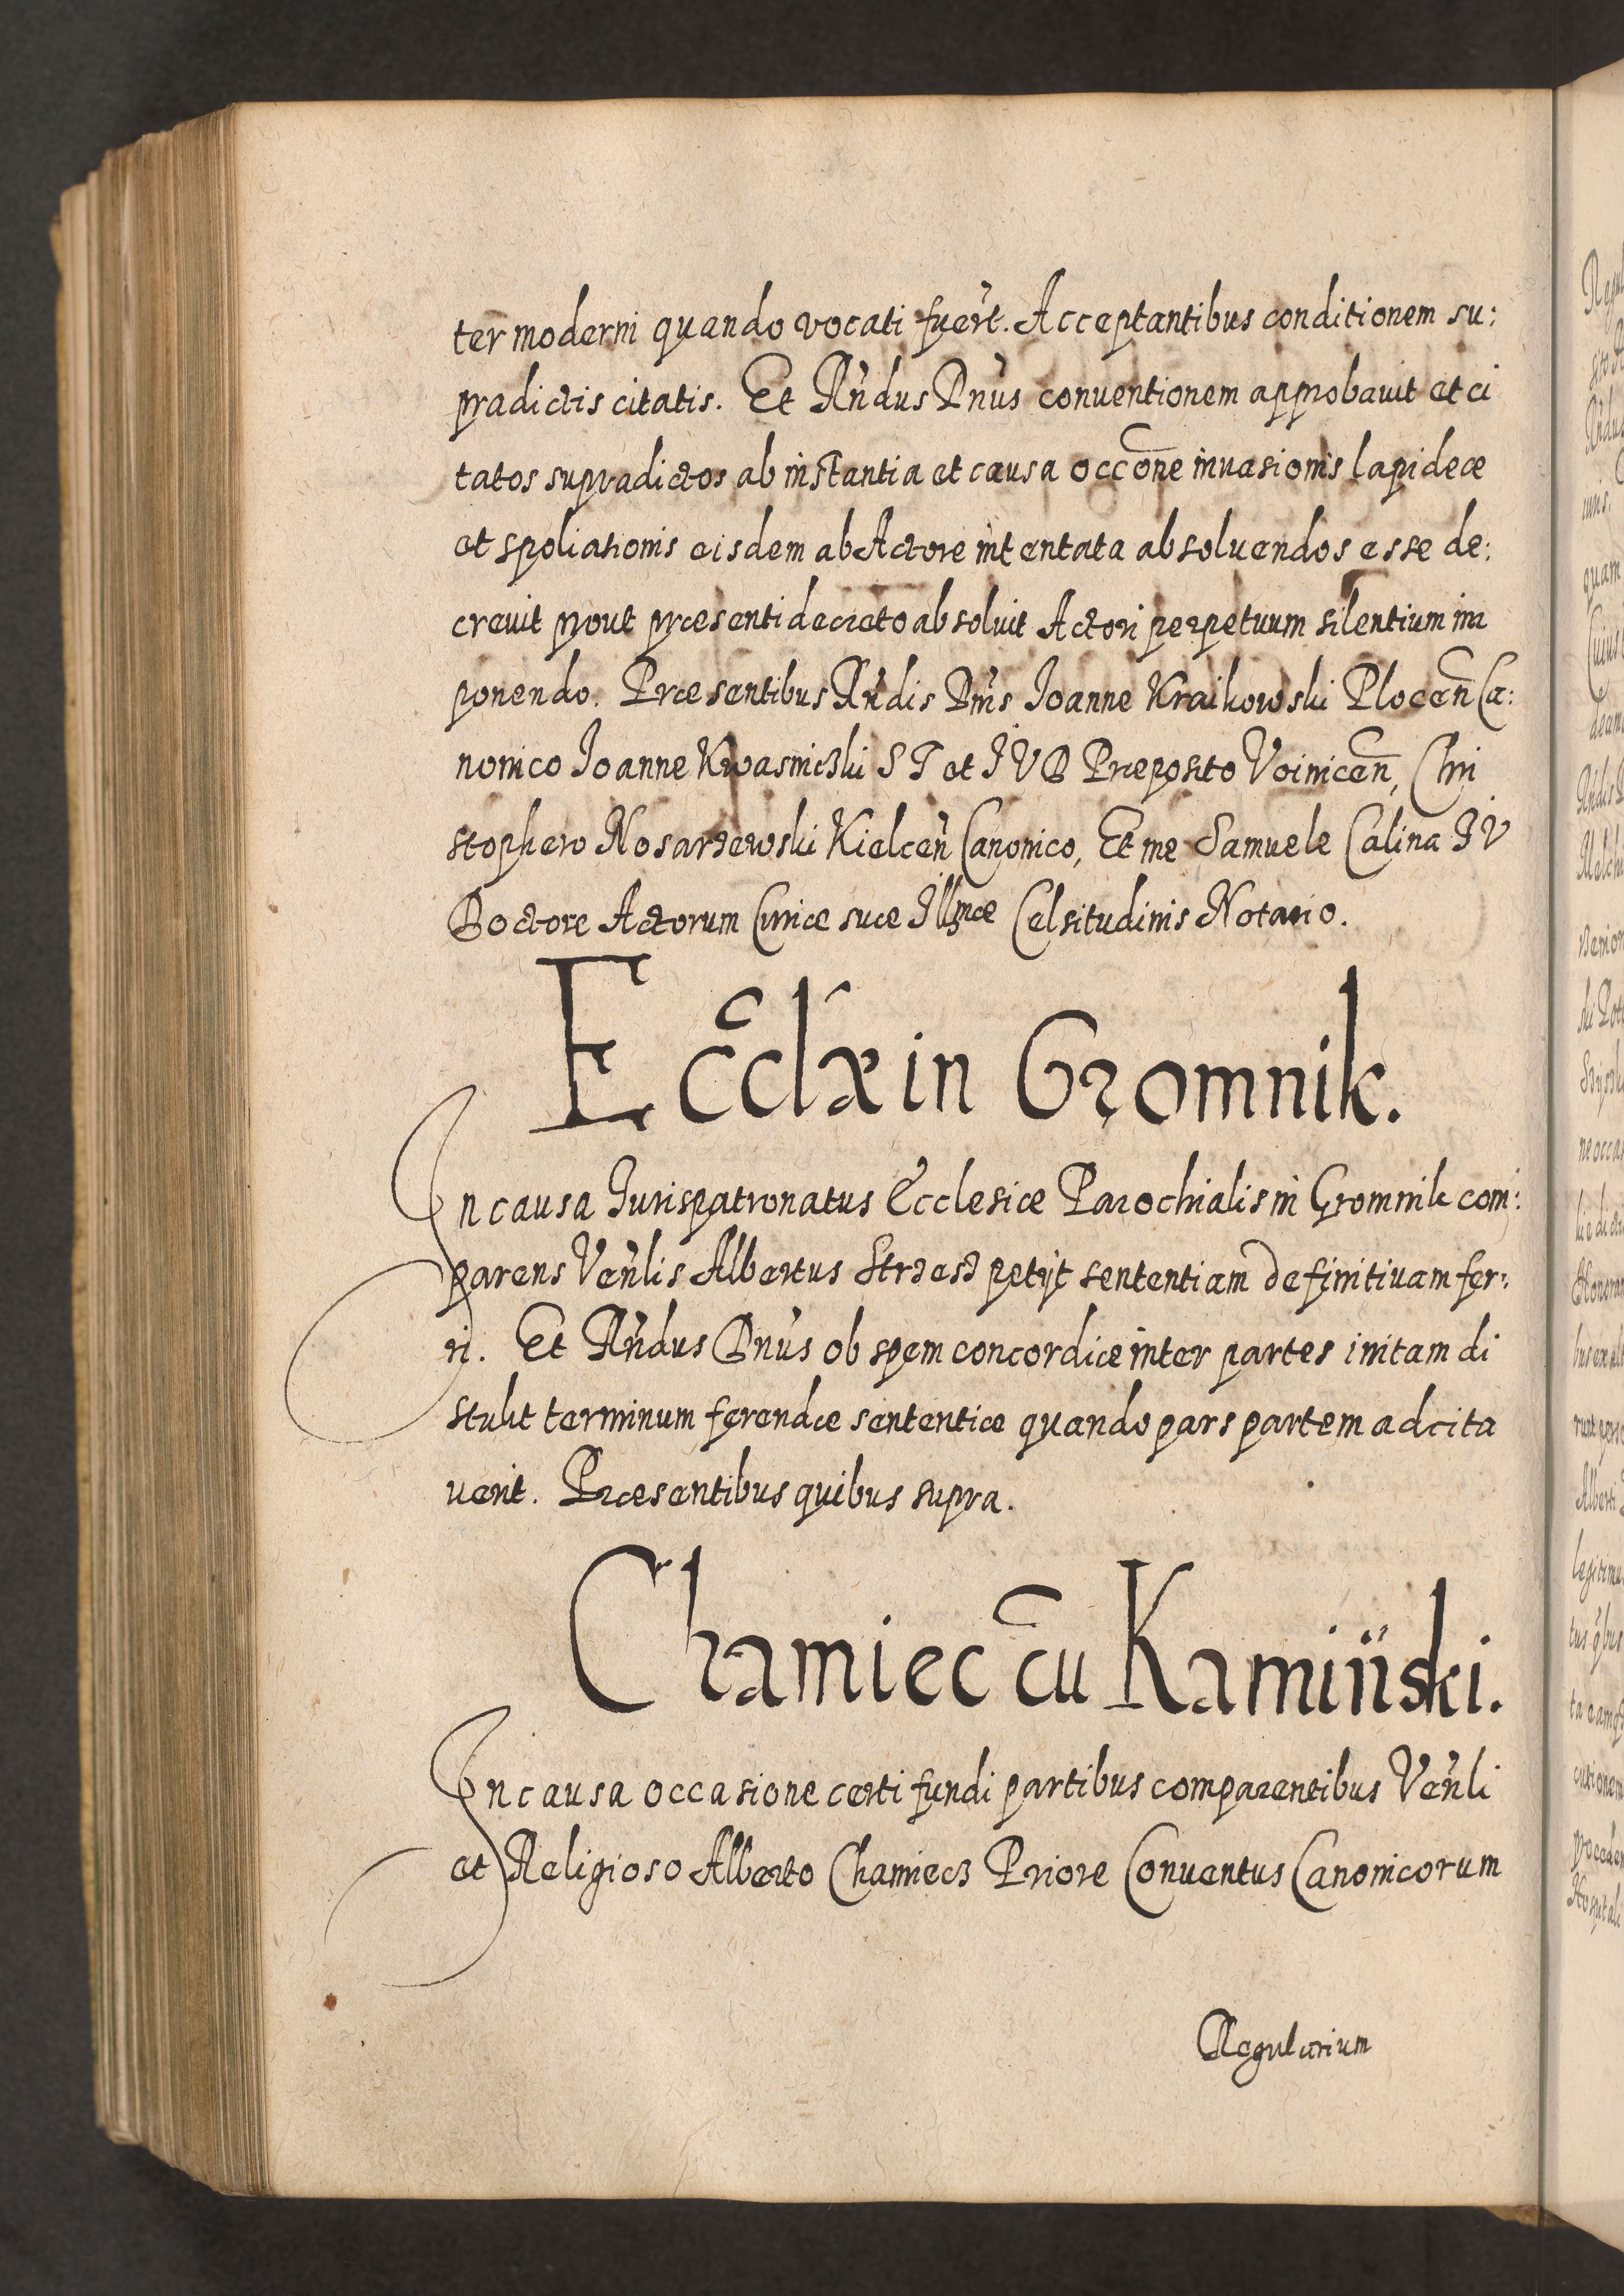 ter moderni quando vocati fuer̃t. Acceptantibus conditionem su:
pradictis citatis. Et Rñdus Dnus conuentionem approbauit et ci
tatos supradictos ab instantia et causa occõne inuasionis lapideæ
et spoliationis eisdem ab Actore intentata absoluendos esse de:
creuit prout præsenti decreto absoluit Actori perpetuum silentium im
ponendo. Præsentibus Rñdis Dnis Ioanne Kraikowski Plocen̄ Ca:
nonico Ioanne Kwasniczki S T et I V D Præposito Voinicen̄, Chri
stophero Nosarzewski Kielceñ Canonico, Et me Samuele Calina I V
Doctore Actorum Curiæ suæ Illmæ Celsitudinis Notario.
Eccłæ in Gromnik.
In causa Iurispatronatus Ecclesiæ Parochialis in Gromnik com:
parens Veñlis Albertus Strzesz petijt sententiam definitiuam fer:
ri. Et Rñdus Dñus ob spem concordiæ inter partes initam di
stulit terminum ferendæ sententiæ quando pars partem adcita
uerit. Præsentibus quibus supra.
Chamiec cū Kamiński.
In causa occasione certi fundi partibus comparentibus Veñli
et Religioso Alberto Chamiecz Priore Conuentus Canonicorum
Regularium